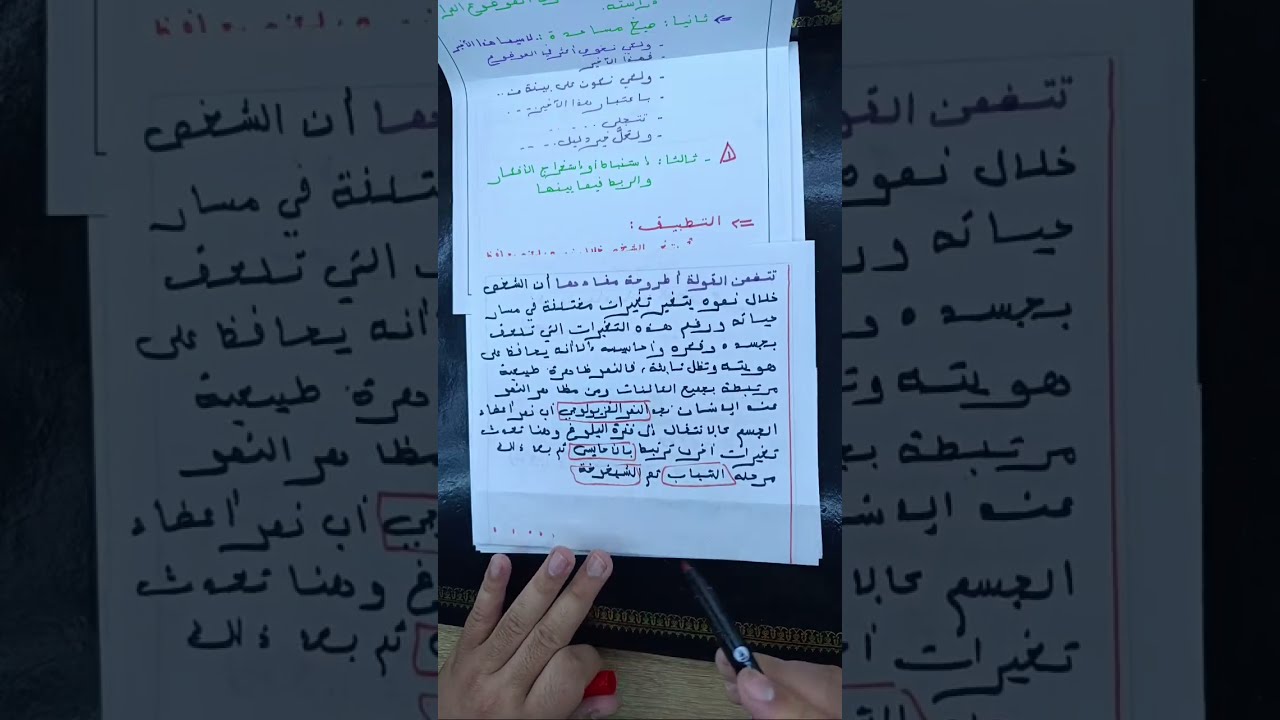 دراسته.
ثانيا: صيغ مساعدة:. لاسيما هذا الأخير
- ولكي نغوص أكثر في الموضوع
- فهذا الأخير
- ولكي نكون على بينة من..
- باعتبار هذا الأخير...
- تتجلى.....
- ولعل خير دليل....
- ثالثا: استنباط أو استخراج الأفكار
والربط فيما بينها
=> التطبيق:
تتضمن القولة أطروحة مفادها أن الشخص
خلال نموه يتغير تغيرات مختلفة في مسار
حياته ورغم هذه التغيرات التي تلحق
بجسده وفكره وأحاسيسه إلا أنه يحافظ على
هويته وتظل ثابتة، فالنمو ظاهرة طبيعية
مرتبطة بجميع الكائنات ومن مظاهر النمو
عند الإنسان نجد النمو الفزيولوجي أي نمو أعضاء
الجسم كالانتقال إلى فترة البلوغ وهنا تحدث
تغيرات أخرى ترتبط بالأحاسيس ثم بعد ذلك
مرحلة الشباب ثم الشيخوخة